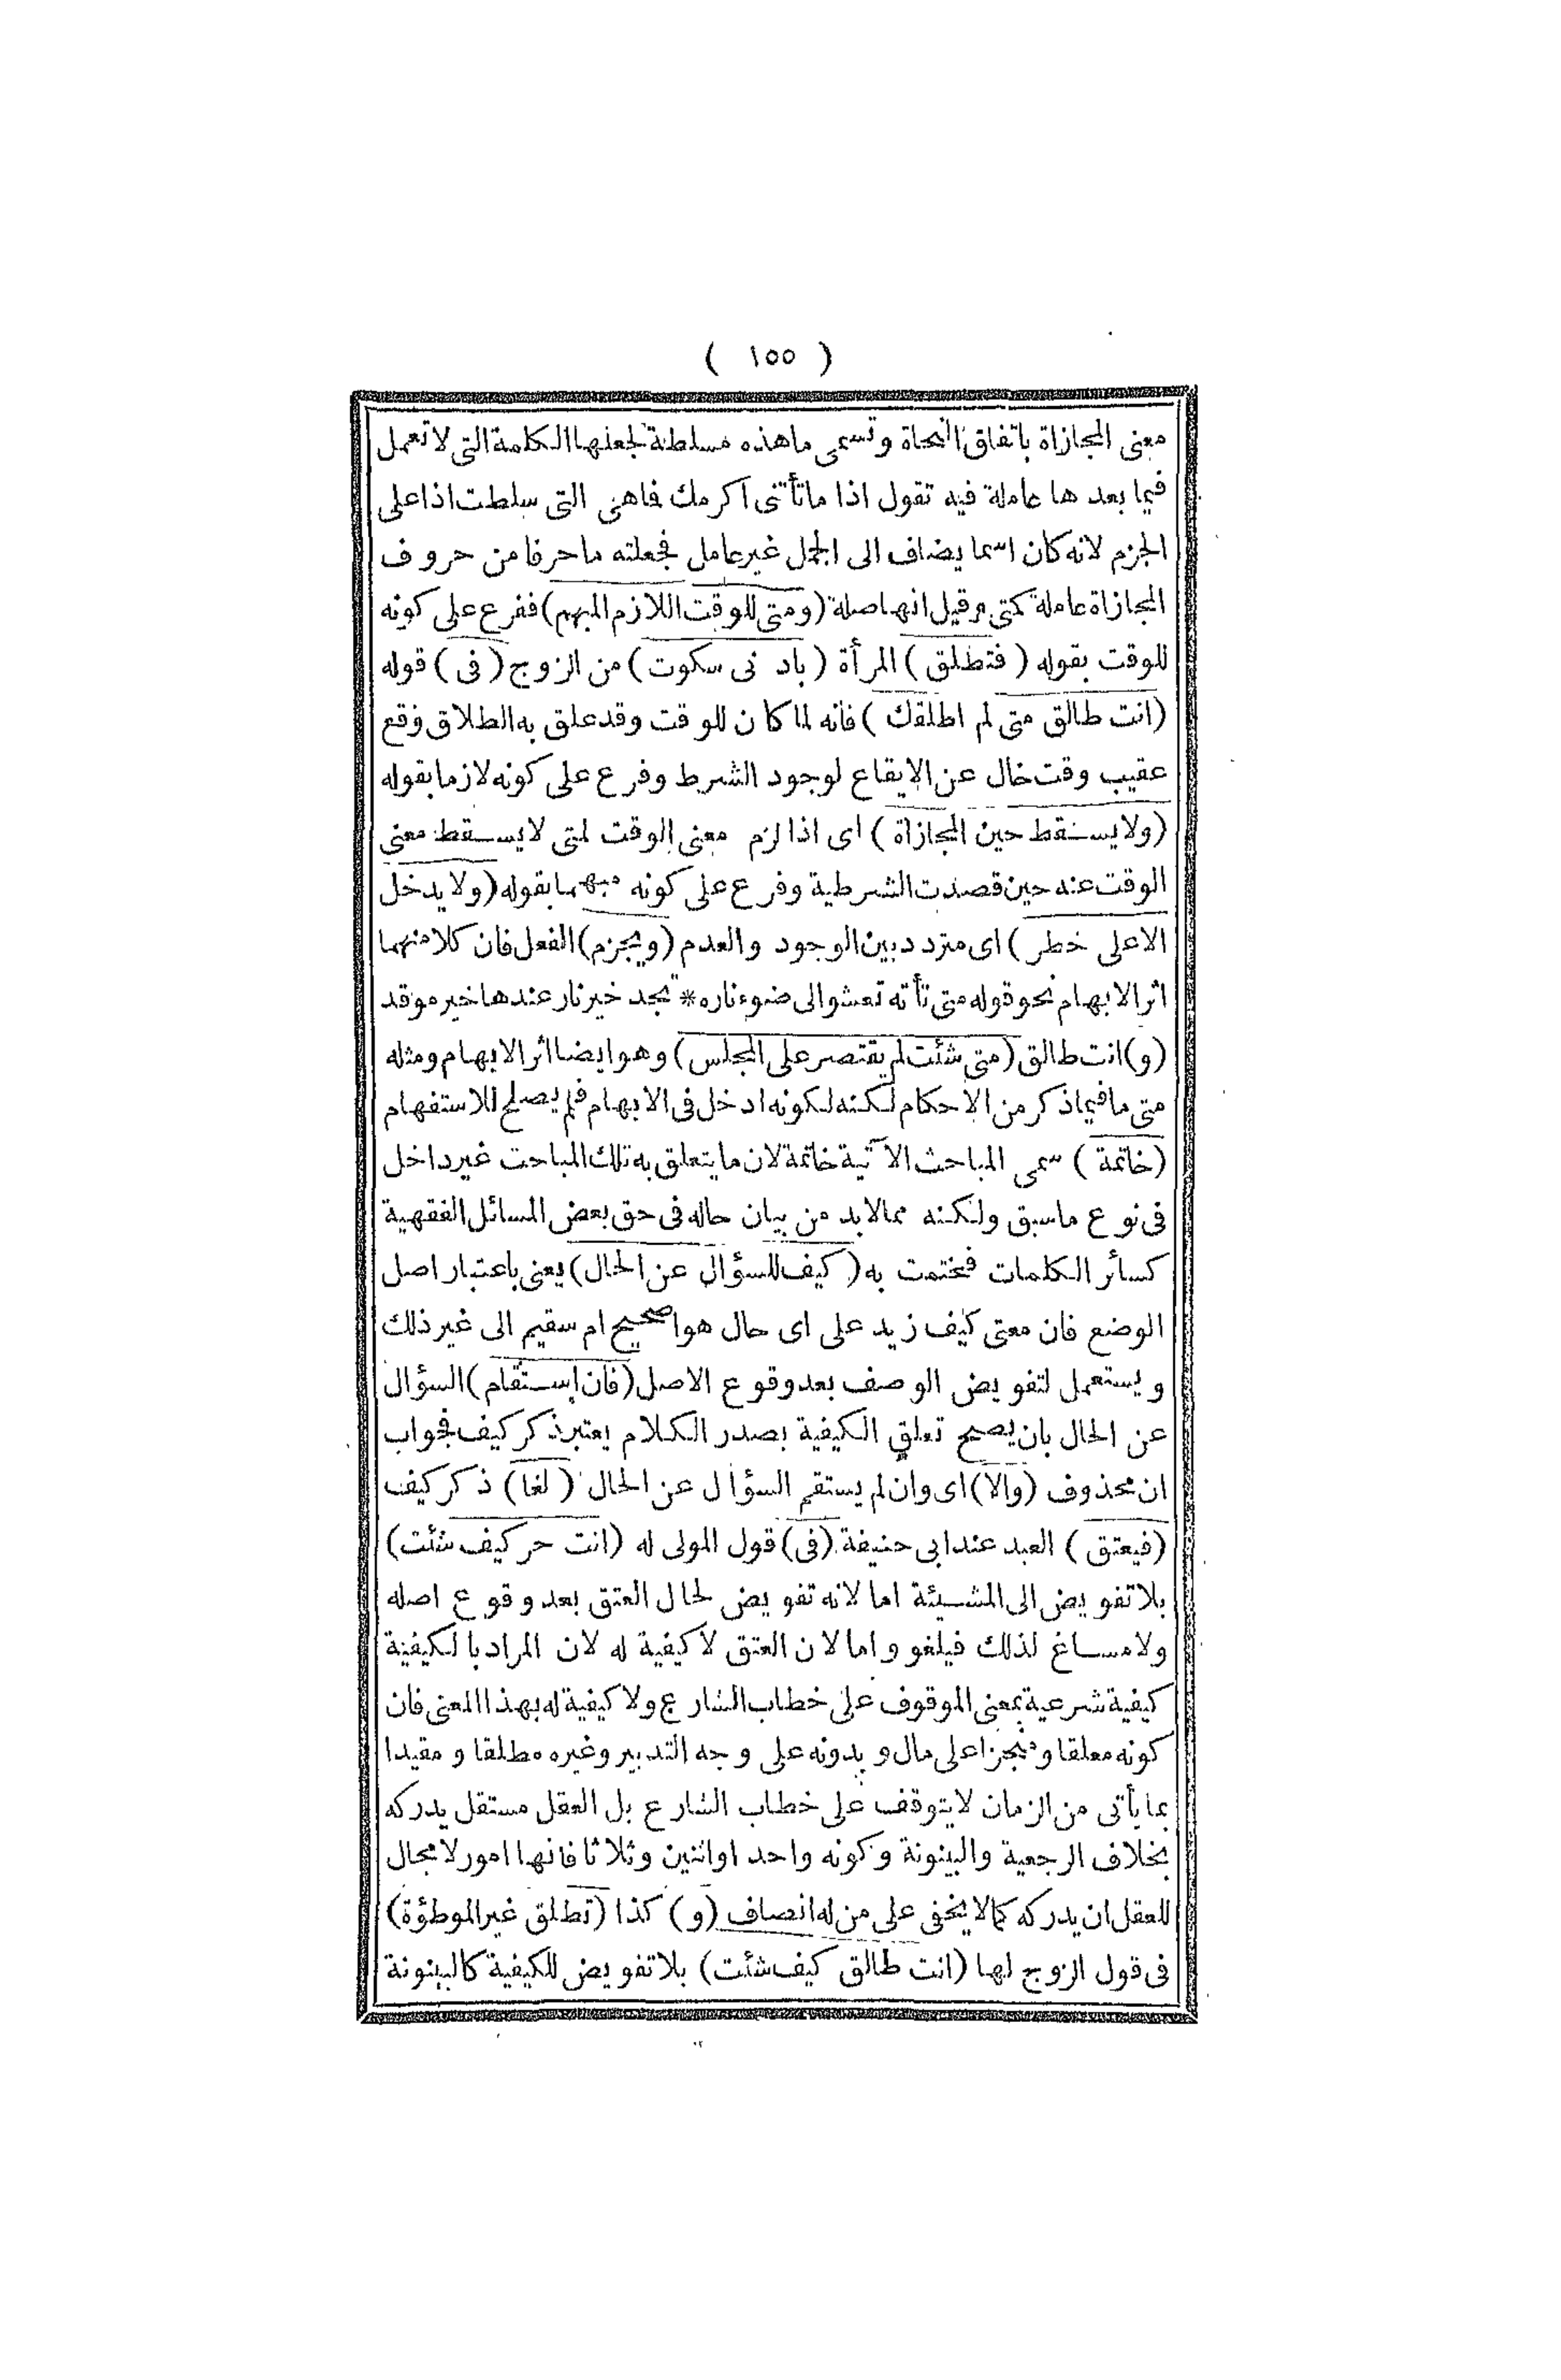 ( ١٥٥ )
معنى المجازاة باتفاق النحاة وتسمى ما هذه مسلطة لجعلها الكلمة التى لا تعمل
فيما بعد ها عاملة فيه تقول اذا ما تأتنى اكرمك فاهى التى سلطت اذا على
الجزم لانه كان اسما يضاف الى الجمل غير عامل فجعلته ما حرفا من حروف
المجازاة عاملة كمتى وقيل انها صلة (ومتى للوقت اللازم المبهم) ففرع على كونه
للوقت بقوله (فتطلق) المرأة (باد نى سكوت) من الزوج (فى) قوله
(انت طالق متى لم اطلقك) فانه لما كان للوقت وقد علق به الطلاق وقع
عقيب وقت خال عن الايقاع لوجود الشرط وفرع على كونه لازما بقوله
(ولا يسقط حين المجازاة) اى اذا لزم معنى الوقت لمتى لا يسقط معنى
الوقت عنه حين قصدت الشرطية وفرع على كونه مبهما بقوله (ولا يدخل
الا على خطر) اى متردد بين الوجود والعدم (ويجزم) الفعل فان كلا منهما
اثر الابهام نحو قوله متى تأته تعشو الى ضوء ناره * تجد خير نار عندها خير موقد
(و) انت طالق (متى شئت لم يقتصر على المجلس) وهو ايضا اثر الابهام ومثله
متى ما فيما ذكر من الاحكام لكنه لكونه ادخل فى الابهام فلم يصلح للاستفهام
(خاتمة) سمى المباحث الآتية خاتمة لان ما يتعلق به تلك المباحث غير داخل
فى نوع ما سبق ولكنه مما لا بد من بيان حاله فى حق بعض المسائل الفقهية
كسائر الكلمات فختمت به (كيف للسؤال عن الحال) يعنى باعتبار اصل
الوضع فان معنى كيف زيد على اى حال هو اصحيح ام سقيم الى غير ذلك
ويستعمل لتفويض الوصف بعد وقوع الاصل (فان استقام) السؤال
عن الحال بان يصح تعلق الكيفية بصدر الكلام يعتبر ذكر كيف فجواب
ان محذوف (والا) اى وان لم يستقم السؤال عن الحال (لغا) ذكر كيف
(فيعتق) العبد عند ابى حنيفة (فى) قول المولى له (انت حر كيف شئت)
بلا تفويض الى المشيئة اما لانه تفويض لحال العتق بعد وقوع اصله
ولا مساغ لذلك فيلغو واما لان العتق لا كيفية له لان المراد بالكيفية
كيفية شرعية بمعنى الموقوف على خطاب الشارع ولا كيفية له بهذا المعنى فان
كونه معلقا ومنجزا على مال و بدونه على وجه التدبير وغيره مطلقا و مقيدا
بما يأتى من الزمان لا يتوقف على خطاب الشارع بل العقل مستقل يدركه
بخلاف الرجعية والبينونة وكونه واحد او اثنين وثلاثا فانها امور لا مجال
للعقل ان يدركه كما لا يخفى على من له انصاف (و) كذا (تطلق غير الموطؤة)
فى قول الزوج لها (انت طالق كيف شئت) بلا تفويض للكيفية كالبينونة